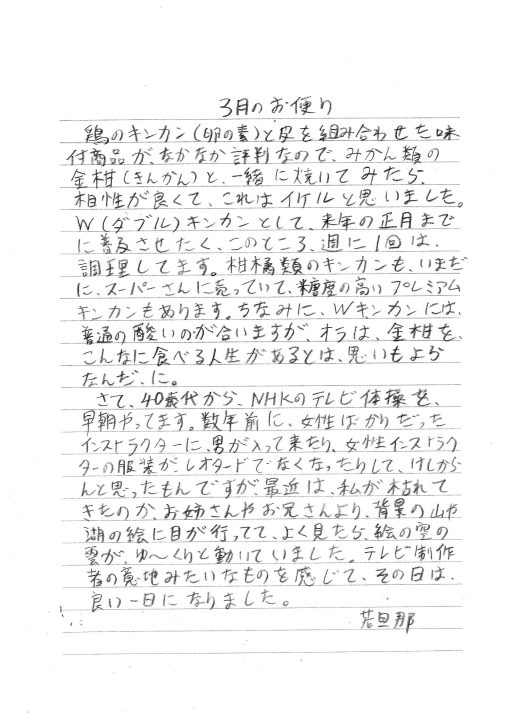 3月のお便り
鶏のキンカン(卵の素)と皮を組み合わせた味
付商品が、なかなか評判なので、みかん類の
金柑(きんかん)と、一緒に焼いてみたら、
相性が良くて、これはイケルと思いました。
W(ダブル)キンカンとして、来年の正月まで
に普及させたく、このところ、週に1回は、
調理してます。柑橘類のキンカンも、いまだ
に、スーパーさんに売っていて、糖度の高いプレミアム
キンカンもあります。ちなみに、Wキンカンには、
普通の酸いのが合いますが、オラは、金柑を、
こんなに食べる人生があるとは、思いもよら
なんだ、に。
さて、40歳代から、NHKのテレビ体操を、
早朝やってます。数年前に、女性ばかりだった
インストラクターに、男が入って来たり、女性インストラク
ターの服装が、レオタードでなくなったりして、けしから
んと思ったもんですが、最近は、私が枯れて
きたのか、お姉さんやお兄さんより、背景の山や
湖の絵に目が行ってて、よく見たら、絵の空の
雲が、ゆ〜くりと動いていました。テレビ制作
者の意地みたいなものを感じて、その日は、
良い一日になりました。
若旦那